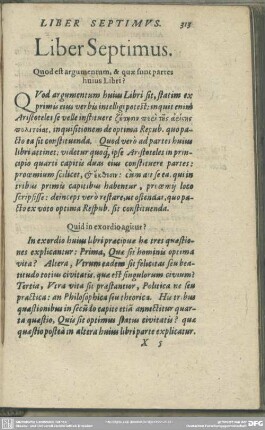 LIBER SEPTIMVS. 313
Liber Septimus.
Quod est argumentum, & quæ sunt partes
huius Libri?
QVod argumentum huius Libri sit, statim ex
primis eius verbis intelligi potest: inquit enim
Aristoteles se velle instituere ζήτησιν περὶ τῆς ἀρίστης
πολιτείας, inquisitionem de optima Repub. quo pa-
cto ea sit constituenda. Quod verò ad partes huius
libri attinet: videtur quoq; ipse Aristoteles in prin-
cipio quarti capitis duas eius constituere partes:
proœmium scilicet, & cùm ait se ea. qui in
tribus primis capitibus habentur, proœmij loco
scripsisse: deinceps verò restare, ut ostendat, quo pa-
cto ex voto optima Respub. sit constituenda.
Quid in exordio agitur?
In exordio huius libri præcipuè hæ tres quæstio-
nes explicantur: Prima, Quæ sit hominis optima
vita? Altera, Vtrum eadem sit felicitas seu bea-
titudo totius civitatis. quæ est singulorum civium?
Tertia, Vtra vita sit præstantior, Politica ne seu
practica: an Philosophica seu theorica. His tribus
quæstionibus in secūdo capite etiā annectitur quar-
ta quæstio, Quis sit optimus status civitatis? quæ
quæstio posteà in altera huius libri parte explicatur.
X 5